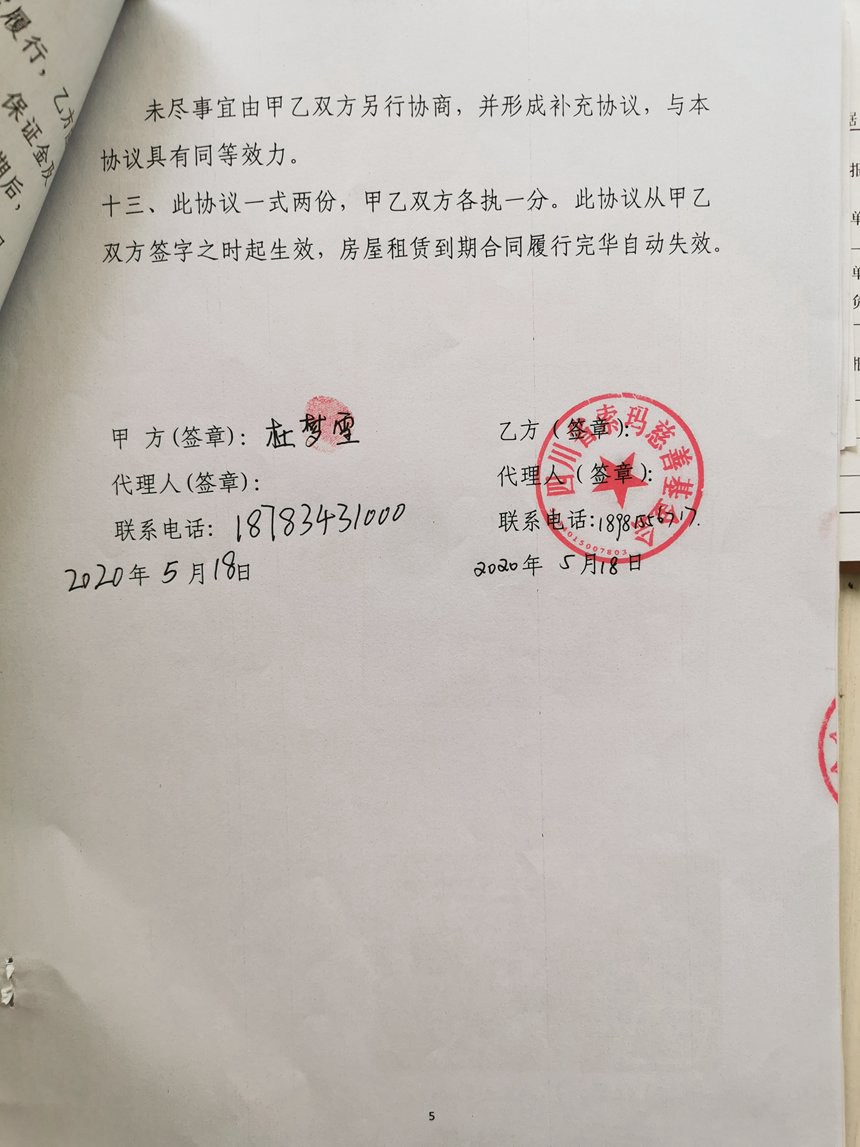 履行，
乙方
保证金及
期后，
未尽事宜由甲乙双方另行协商，并形成补充协议，与本
协议具有同等效力。
十三、此协议一式两份，甲乙双方各执一分。此协议从甲乙
双方签字之时起生效，房屋租赁到期合同履行完华自动失效。
甲 方(签章)：杜梦雪
代理人(签章)：
联系电话：18783431000
2020年 5 月18日
乙方（签章）：
代理人（签章）：
联系电话:
2020年 5月18日
四川省索玛慈善基金会
5